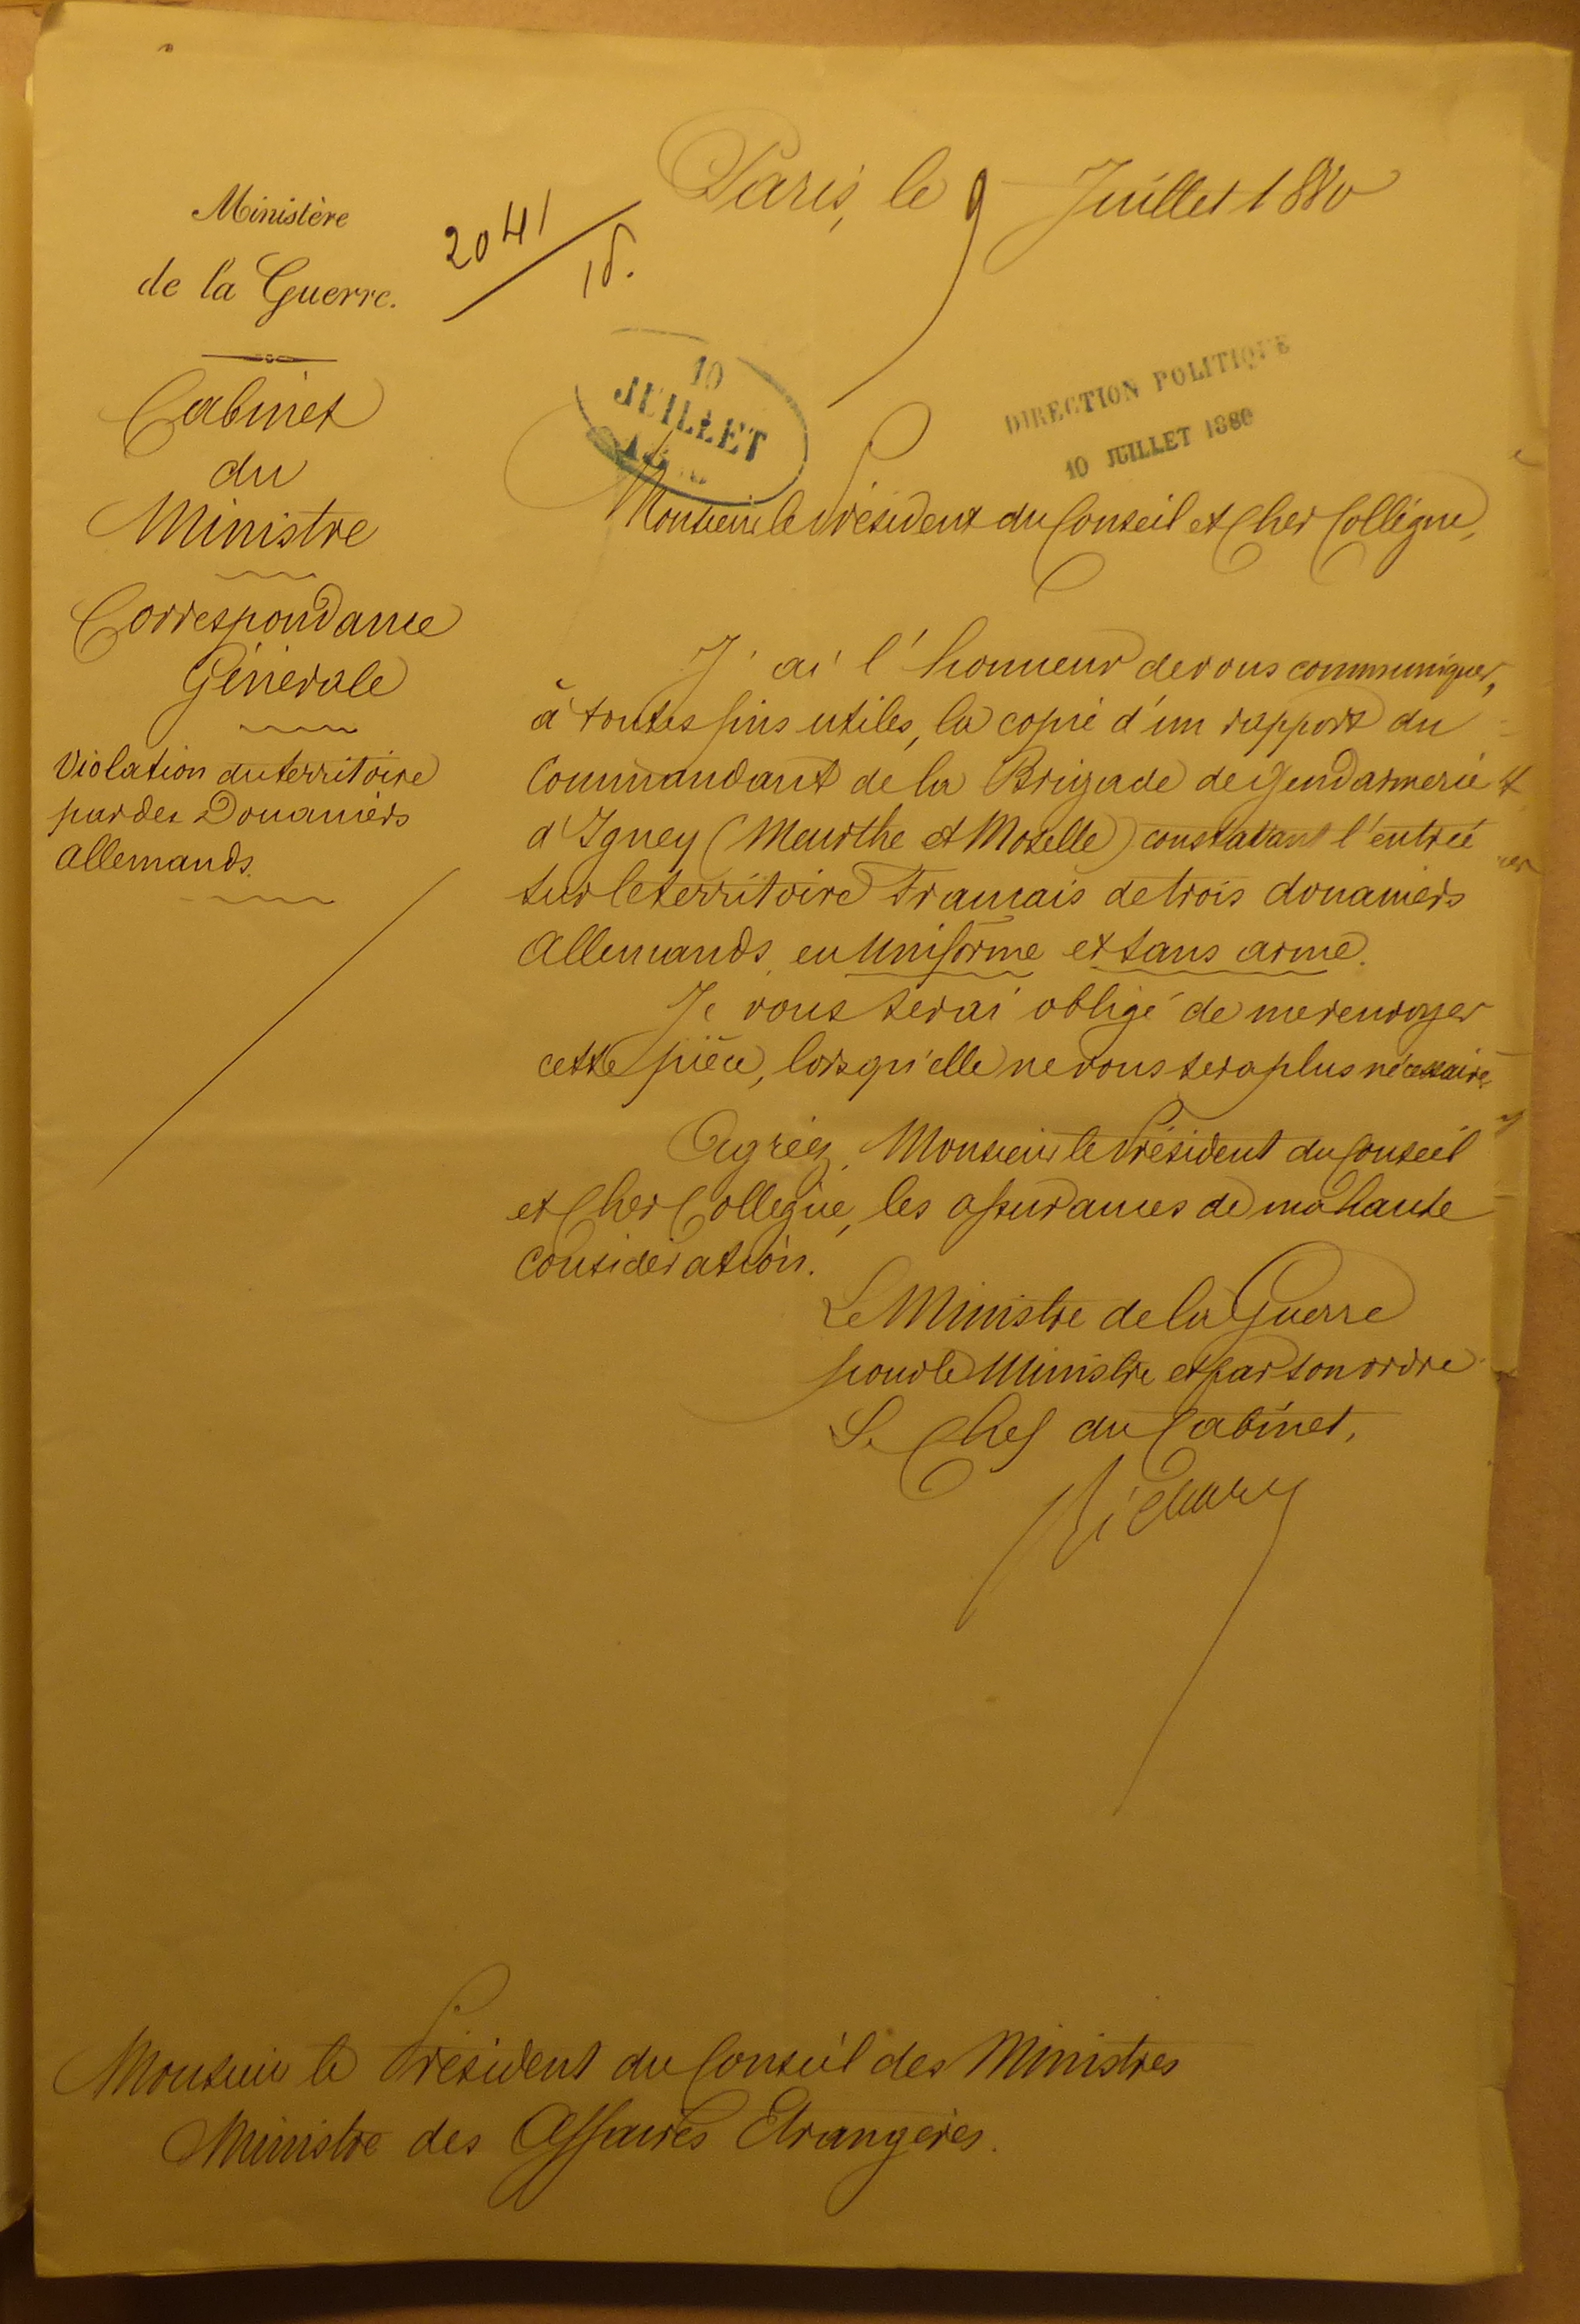 Paris, le 9 Juillet 1880
Ministère
de la Guerre.
2041
Cabinet
du
Ministre
Correspondance
Générale
Violation du territoire
par des Douaniers
allemands.
10
JUILLET
DIRECTION POLITIQUE
10 JUILLET 1880
Monsieur le Président du Conseil et Cher Collègue,
J'ai l'honneur de vous communiquer,
à toutes fins utiles, la copie d'un rapport du
Commandant de la Brigade de gendarmerie
d'Igney (Meurthe et Moselle) constatant l'entrée
sur le territoire Français de trois douaniers
Allemands, en uniforme et sans arme.
Je vous serai obligé de me renvoyer
cette pièce, lorsqu'elle ne vous sera plus nécessaire.
Agréez, Monsieur le Président du Conseil
et Cher Collègue, les assurances de ma haute
Considération.
Le Ministre de la Guerre
pour le Ministre et par son ordre
Le Chef du Cabinet,
Monsieur le Président du Conseil des Ministres
Ministre des Affaires Etrangères.